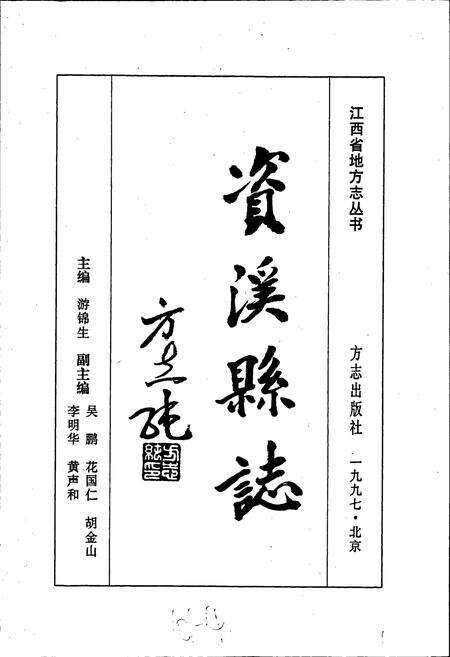 江西省地方志丛书
方志出版社 一九九七·北京
資溪縣誌
方志纯
方志纯印
主编 游锦生 副主编
吴鹏 花国仁 胡金山
李明华 黄声和